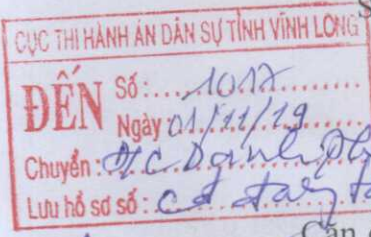 S
CỤC THI HÀNH ÁN DÂN SỰ TỈNH VĨNH LONG
ĐẾN
Số: 1017
Ngày 01/11/19
Chuyển:
Lưu hồ sơ số:
Căn